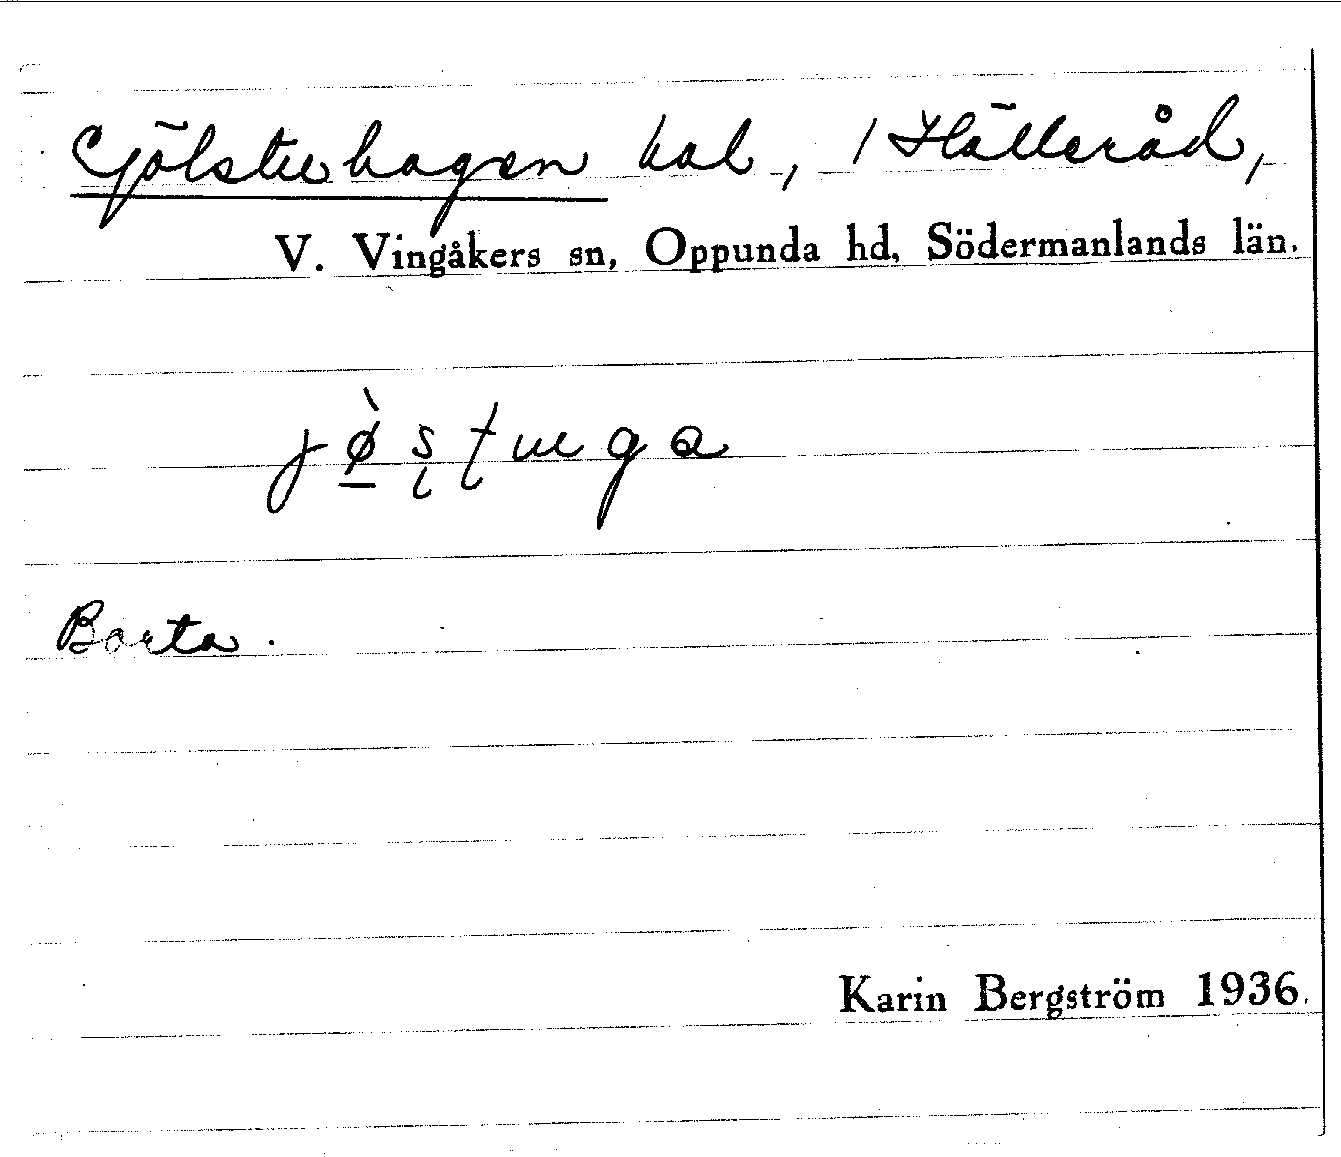 Gjölstuhagen hab, 1 Hälleråd,
V. Vingåkers sn, Oppunda hd, Södermanlands län.
Borta.
Karin Bergström 1936.